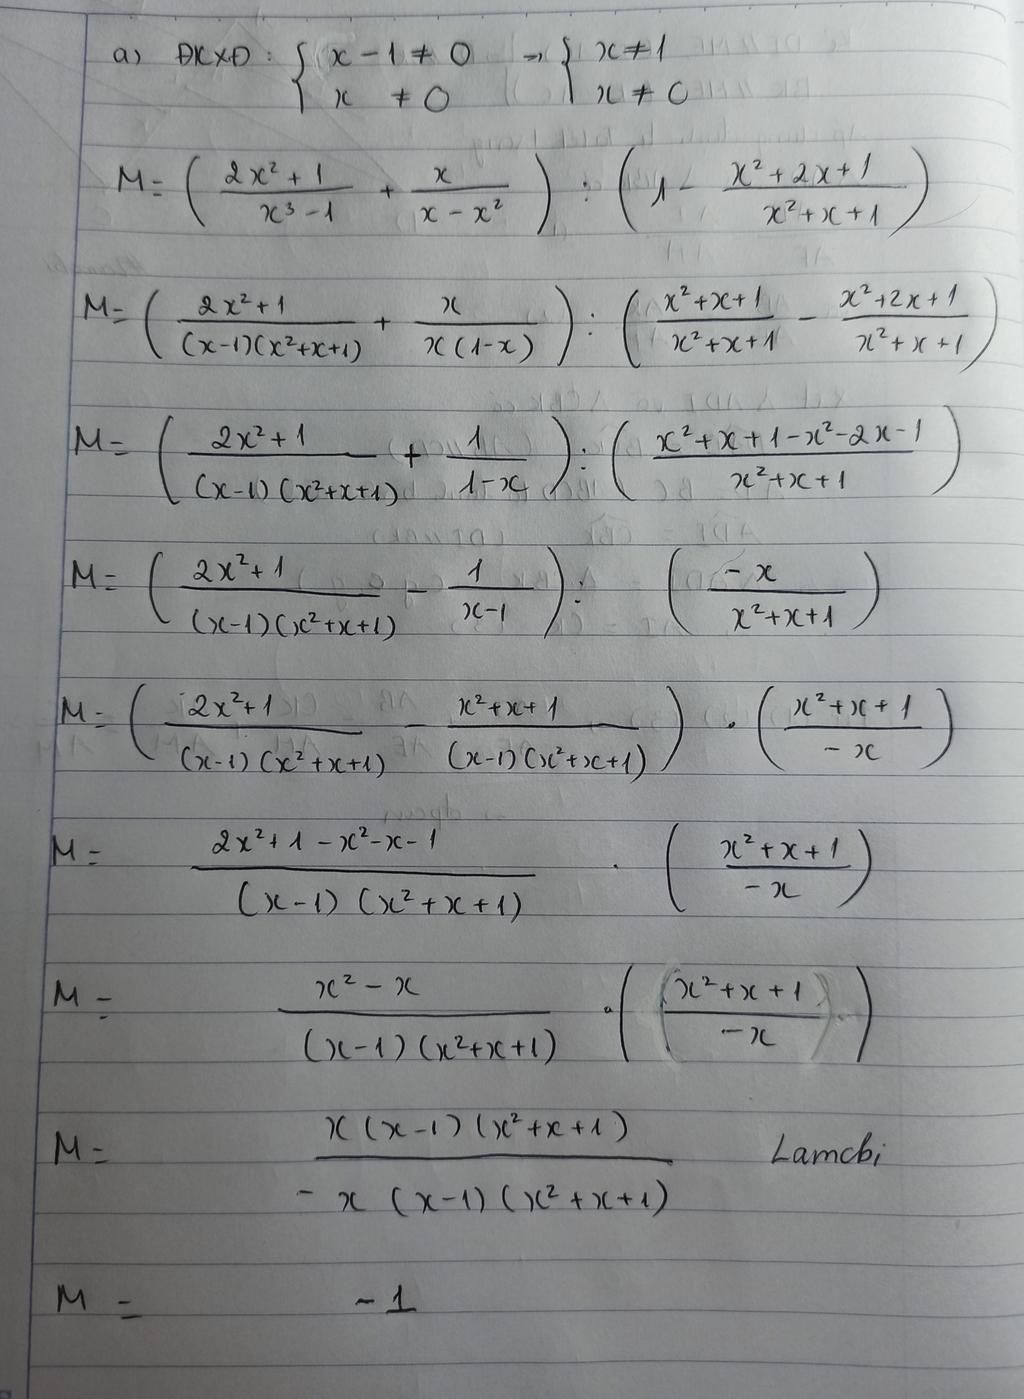 a) ĐKXĐ : { x - 1 ≠ 0 → { x ≠ 1
x ≠ 0 x ≠ 0
M = ( (2x² + 1)/(x³ - 1) + x/(x - x²) ) : ( 1 - (x² + 2x + 1)/(x² + x + 1) )
M = ( (2x² + 1)/((x-1)(x²+x+1)) + x/(x(1-x)) ) : ( (x²+x+1)/(x²+x+1) - (x²+2x+1)/(x²+x+1) )
M = ( (2x²+1)/((x-1)(x²+x+1)) + 1/(1-x) ) : ( (x²+x+1-x²-2x-1)/(x²+x+1) )
M = ( (2x²+1)/((x-1)(x²+x+1)) - 1/(x-1) ) : ( (-x)/(x²+x+1) )
M = ( (2x²+1)/((x-1)(x²+x+1)) - (x²+x+1)/((x-1)(x²+x+1)) ) . ( (x²+x+1)/(-x) )
M = (2x²+1-x²-x-1)/((x-1)(x²+x+1)) . ( (x²+x+1)/(-x) )
M = (x²-x)/((x-1)(x²+x+1)) . ( (x²+x+1)/(-x) )
M = (x(x-1)(x²+x+1))/(-x(x-1)(x²+x+1)) Lamchi
M = -1